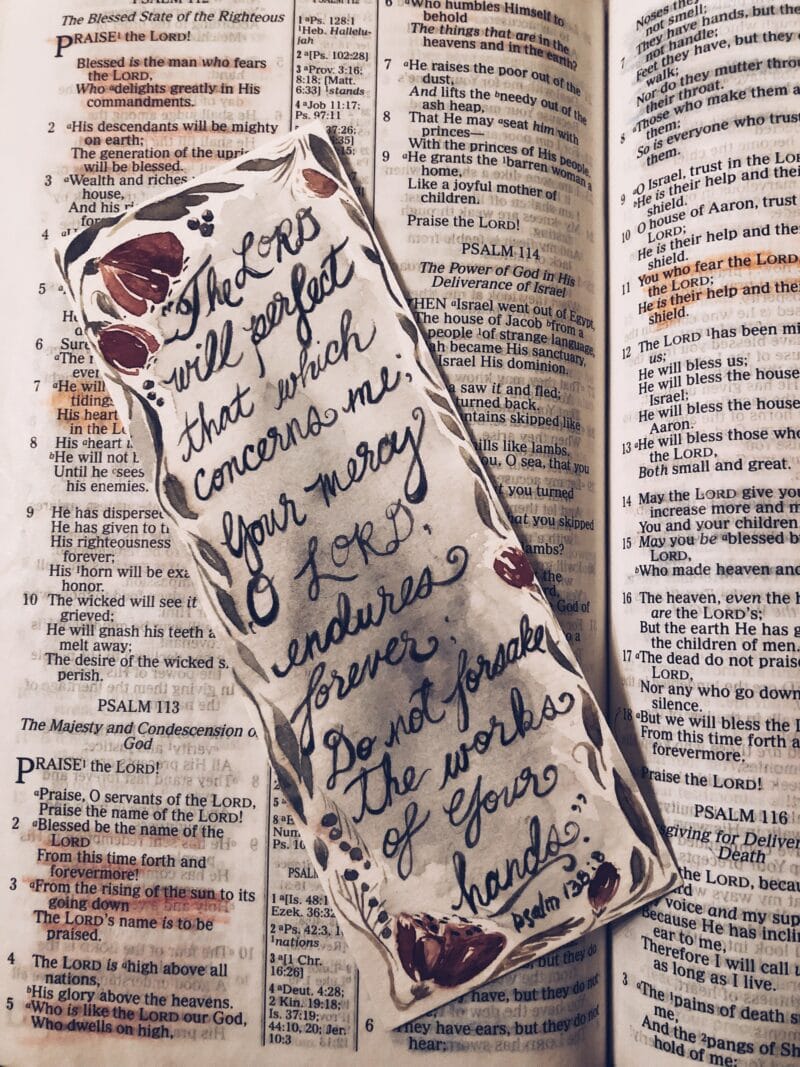 PSALM 112
The Blessed State of the Righteous
PRAISE¹ the LORD!
Blessed is the man who fears
the LORD,
Who ᵃdelights greatly in His
commandments.
2 ᵃHis descendants will be mighty
on earth;
The generation of the
will be blessed.
3 ᵃWealth and riches
house,
And his
4
5
6
ever
7 ᵃHe will
tidings
His heart
in the
8 His ᵃheart
ᵇHe will not
Until he ᶜsees
his enemies.
9 He has dispersed
He has given to
His righteousness
forever;
His ¹horn will be
honor.
10 The wicked will see it
grieved;
He will gnash his teeth
melt away;
The desire of the wicked
perish.
PSALM 113
The Majesty and Condescension
God
PRAISE¹ the LORD!
ᵃPraise, O servants of the LORD,
Praise the name of the LORD!
2 ᵃBlessed be the name of the
LORD
From this time forth and
forevermore!
3 ᵃFrom the rising of the sun to its
going down
The LORD's name is to be
praised.
4 The LORD is ᵃhigh above all
nations,
ᵇHis glory above the heavens.
5 ᵃWho is like the LORD our God,
Who dwells on high,
1 ᵃPs. 128:1
¹Heb. Hallelu-
jah
2 ᵃ[Ps. 102:28]
3 ᵃ[Prov. 3:16;
8:18; [Matt.
6:33] ¹stands
4 ᵃJob 11:17;
Ps. 97:11
37:26;
"The LORD
will perfect
that which
concerns me;
Your mercy
O LORD,
endures
forever;
Do not forsake
the works
of Your
hands."
Psalm 138:8
PSALM
1 ᵃ[Is. 48:1
Ezek. 36:32
2 ᵃPs. 42:3,
¹nations
3 ᵃ[1 Chr.
16:26]
4 ᵃDeut. 4:28;
2 Kin. 19:18;
Is. 37:19;
44:10, 20; Jer.
10:3
6 ᵃWho humbles Himself to
behold
The things that are in the
heavens and in the earth?
7 ᵃHe raises the poor out of the
dust,
And lifts the ᵇneedy out of the
ash heap,
8 That He may ᵃseat him with
princes—
With the princes of His people.
9 ᵃHe grants the ¹barren woman a
home,
Like a joyful mother of
children.
Praise the LORD!
PSALM 114
The Power of God in His
Deliverance of Israel
ᵃIsrael went out of Egypt,
The house of Jacob ᵇfrom a
people ¹of strange language,
became His sanctuary,
Israel His dominion.
saw it and fled;
turned back.
skipped like
like lambs.
O sea, that you
you turned
you skipped
the
God of
but they do
have, but they do not
6 They have ears, but they do not
hear;
Noses they
not smell;
They have hands, but the
7 not handle;
Feet they have, but they
walk;
Nor do they mutter
their throat.
8 ᵃThose who make them
them;
So is everyone who
them.
9 ᵃO Israel, trust in the
ᵇHe is their help and their
shield.
10 O house of Aaron, trust
LORD;
He is their help and their
shield.
11 You who fear the LORD
the LORD;
He is their help and their
shield.
12 The LORD ¹has been
us;
He will bless us;
He will bless the house
Israel;
He will bless the house
Aaron.
13 ᵃHe will bless those who
the LORD,
Both small and great.
14 May the LORD give you
increase more and
You and your children
15 May you be ᵃblessed
LORD,
ᵇWho made heaven and
16 The heaven, even the
are the LORD's;
But the earth He has
the children of men.
17 ᵃThe dead do not praise
LORD,
Nor any who go down
silence.
18 ᵃBut we will bless the
From this time forth
forevermore!
Praise the LORD!
PSALM 116
Death
the LORD, because
voice and my
Because He has
ear to me,
Therefore I will call
as long as I live.
3 ᵃThe ¹pains of death
me,
And the ²pangs of
hold of me;